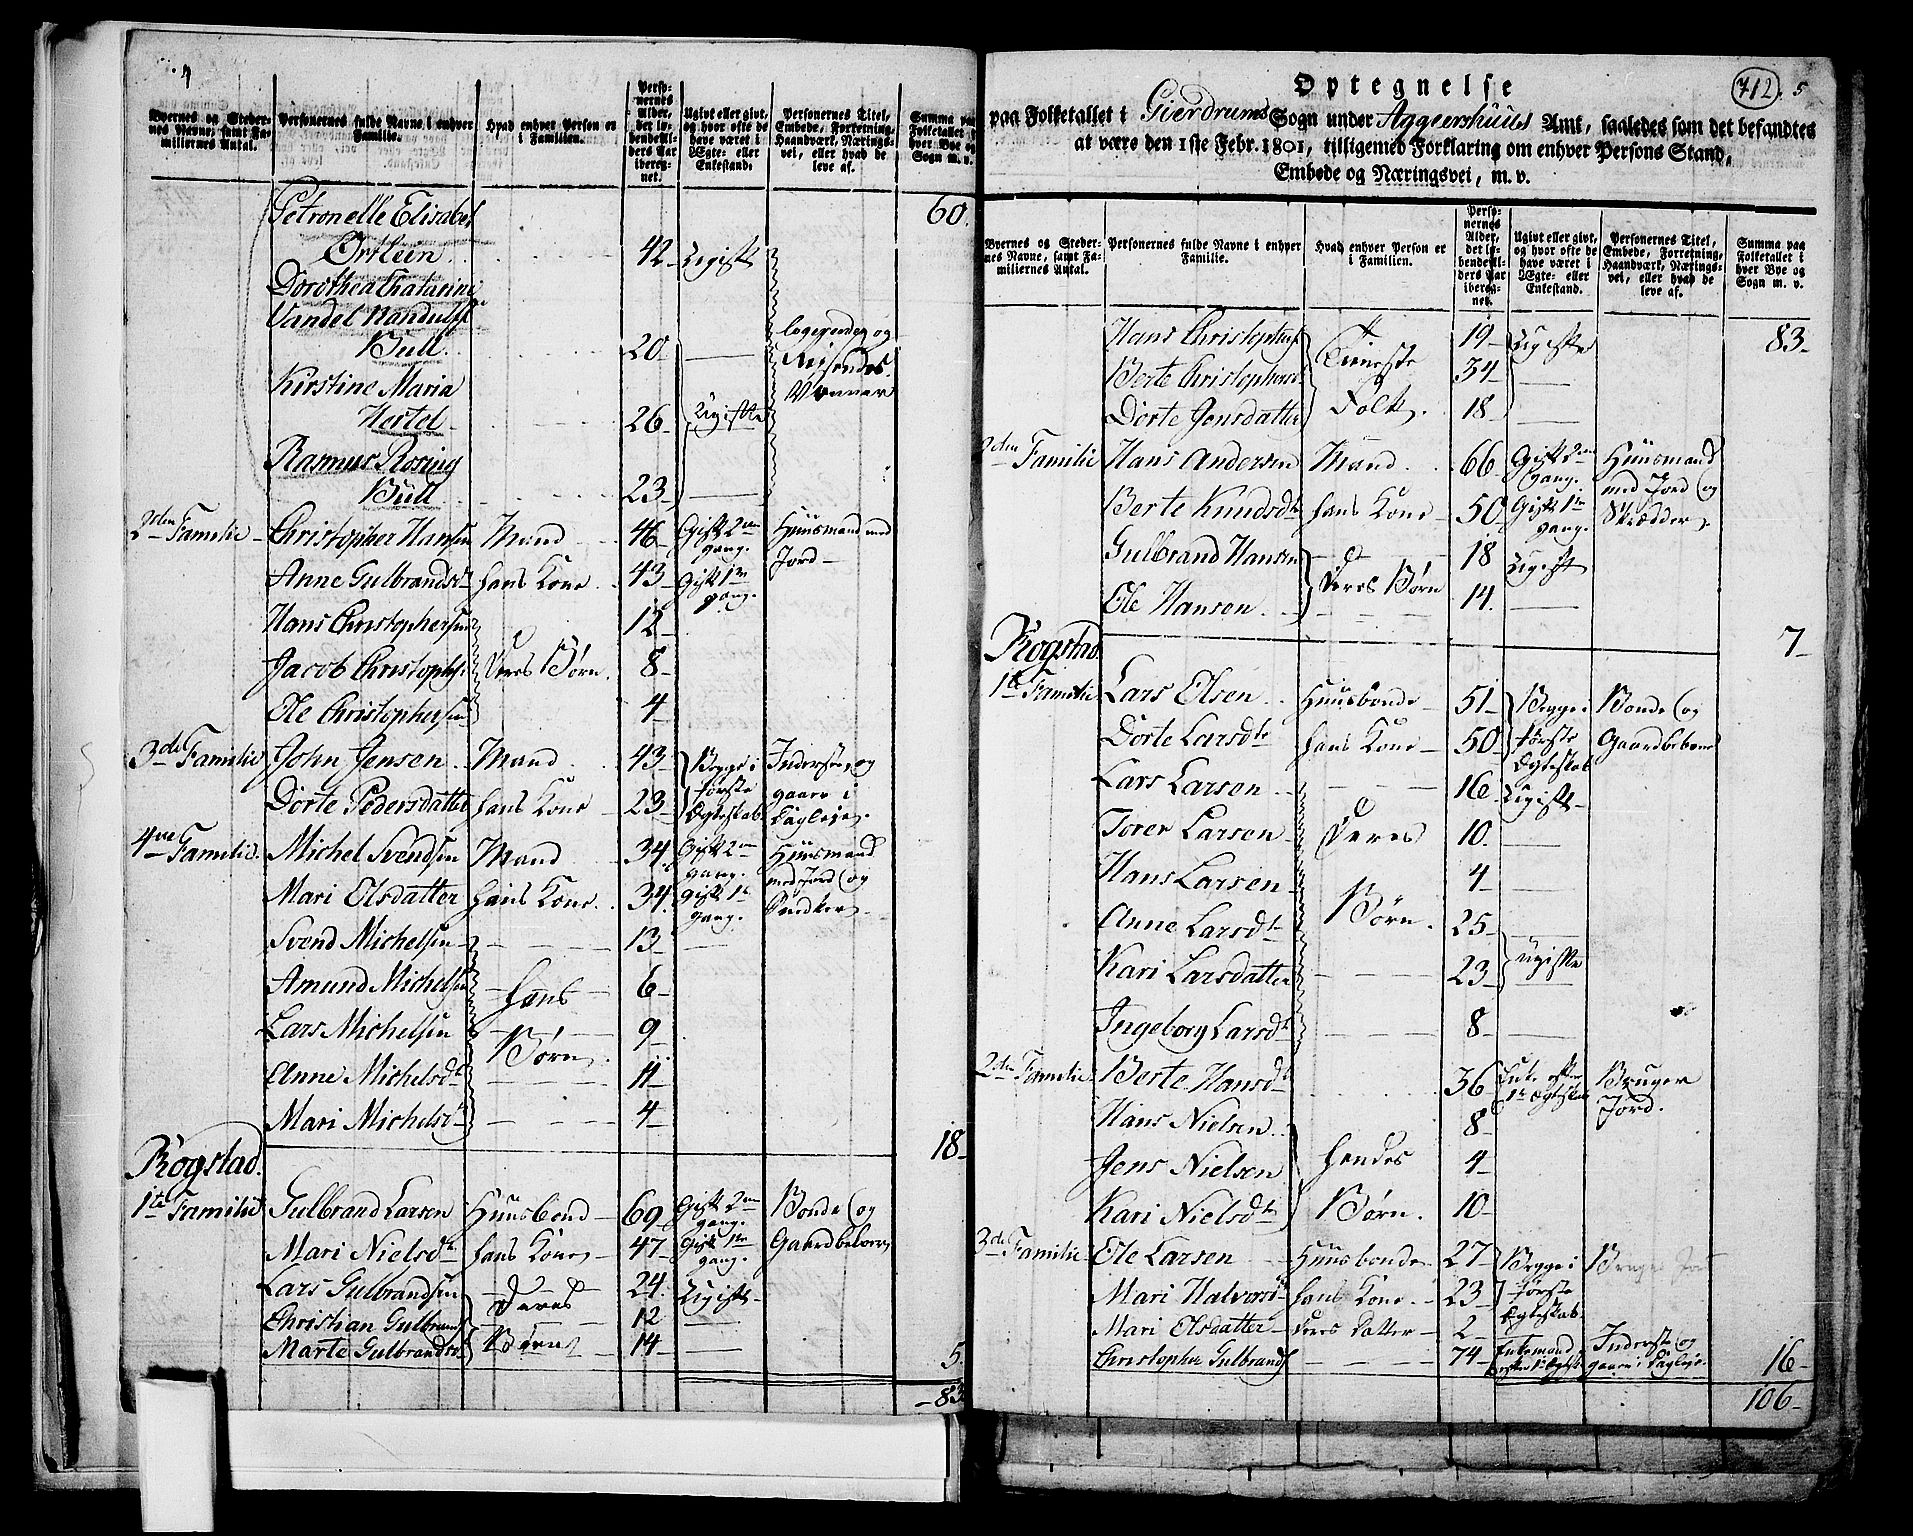 4
Byernes og Steder-
nes Navne, samt Fa-
miliernes Antal.
Personernes fulde Navne i enhver
Familie.
Hvad enhver Person er
i Familien.
Perso-
nernes
Alder,
det lø-
bendeAl-
ders Aar
ibereg-
net.
Ugivt eller givt,
og hvor ofte de
have været i
Ægte- eller
Enkestand.
Personernes Titel,
Embede, Forretning,
Haandværk, Nærings-
vei, eller hvad de
leve af.
Summa paa
Folketallet i
hver Bye og
Sogn m. v.
Petronelle Elisabet 60.
Ørtlein 42 Ugift
Dorothea Chatarina
Vandel Randulff
Bull 20 — logerende og
Reisendes
Venner
Kirstine Maria
Hertel 26 Ugifte
Rasmus Rosing
Bull 23 —
2den Familie Christopher Hansen Mand 46 Gift 2den gang. Huusmand med Jord
Anne Gulbrandsd. hans Kone 43 Gift 1te gang.
Hans Christophersen 12
Jacob Christophs. Deres Børn 8
Ole Christophersen 4
3de Familie John Jensen Mand 43 Begge i første Ægteskab Inderste, og gaaer i Dagleie
Dorte Pedersdatter hans Kone 23
4de Familie Michel Svendsen Mand 34 Gift 2den gang. Huusmand med Jord og Snedker
Mari Olsdatter hans Kone 34 Gift 1te gang.
Svend Michelsen 13 —
Amund Michelsen hans 6
Lars Michelsen Børn 9
Anne Michelsd. 11
Mari Michelsd. 4
Rogstad. 18
1te Familie Gulbrand Larsen Huusbond 69 Gift 2den gang. Bonde og Gaardbeboer
Mari Nielsd. hans Kone 47 Gift 1te gang.
Lars Gulbrandsen Deres 24 Ugift
Christian Gulbrands. Børn 12 —
Marte Gulbrandsd. 14 — 5
83
712. 5
Optegnelse
paa Folketallet i Gierdrums Sogn under Aggershuus Amt, saaledes som det befandtes
at være den 1ste Febr. 1801, tilligemed Forklaring om enhver Persons Stand,
Embede og Næringsvei, m. v.
Byernes og Steder-
nes Navne, samt Fa-
miliernes Antal.
Personernes fulde Navne i enhver
Familie.
Hvad enhver Person er
i Familien.
Perso-
nernes
Alder,
det lø-
bendeAl-
ders Aar
iberég-
net.
Ugivt eller givt,
og hvor ofte de
have været i
Ægte- eller
Enkestand.
Personernes Titel,
Embede, Forretning,
Haandværk, Nærings-
vei, eller hvad de
leve af.
Summa paa
Folketallet i
hver Bye og
Sogn m. v.
Hans Christophers. Tieneste 19 Ugifte 83
Berte Christophersd. Folk 34 —
Dorte Jensdatter 18 —
2den Familie Hans Andersen Mand 66 Gift 2den gang. Huusmand med Jord og Skrædder
Berte Knudsd. hans Kone 50 Gift 1te gang.
Gulbrand Hansen Deres Børn 18 Ugift
Ole Hansen 14 —
Rogstad. 7
1te Familie Lars Olsen Huusbonde 51 Begge i første Ægteskab Bonde og Gaardbeboer
Dorte Larsd. hans Kone 50
Lars Larsen 16 Ugift
Torer Larsen Deres 10 —
Hans Larsen Børn 4 —
Anne Larsd. 25
Kari Larsdatter 23 ugifte
Ingeborg Larsd. 8 —
2den Familie Berte Hansd. 36 Enke efter 1te Ægteskab Bruger Jord.
Hans Nielsen 8
Jens Nielsen hendes 4
Kari Nielsd. Børn 10
3de Familie Ole Larsen Huusbonde 27 Begge i første Ægteskab
Mari Halvorsd. hans Kone 23
Mari Olsdatter Deres Datter 2
Christopher Gulbrands. 74 Enkemand efter 1te Ægtesk. Inderste og gaaer i Dagleie 16
106